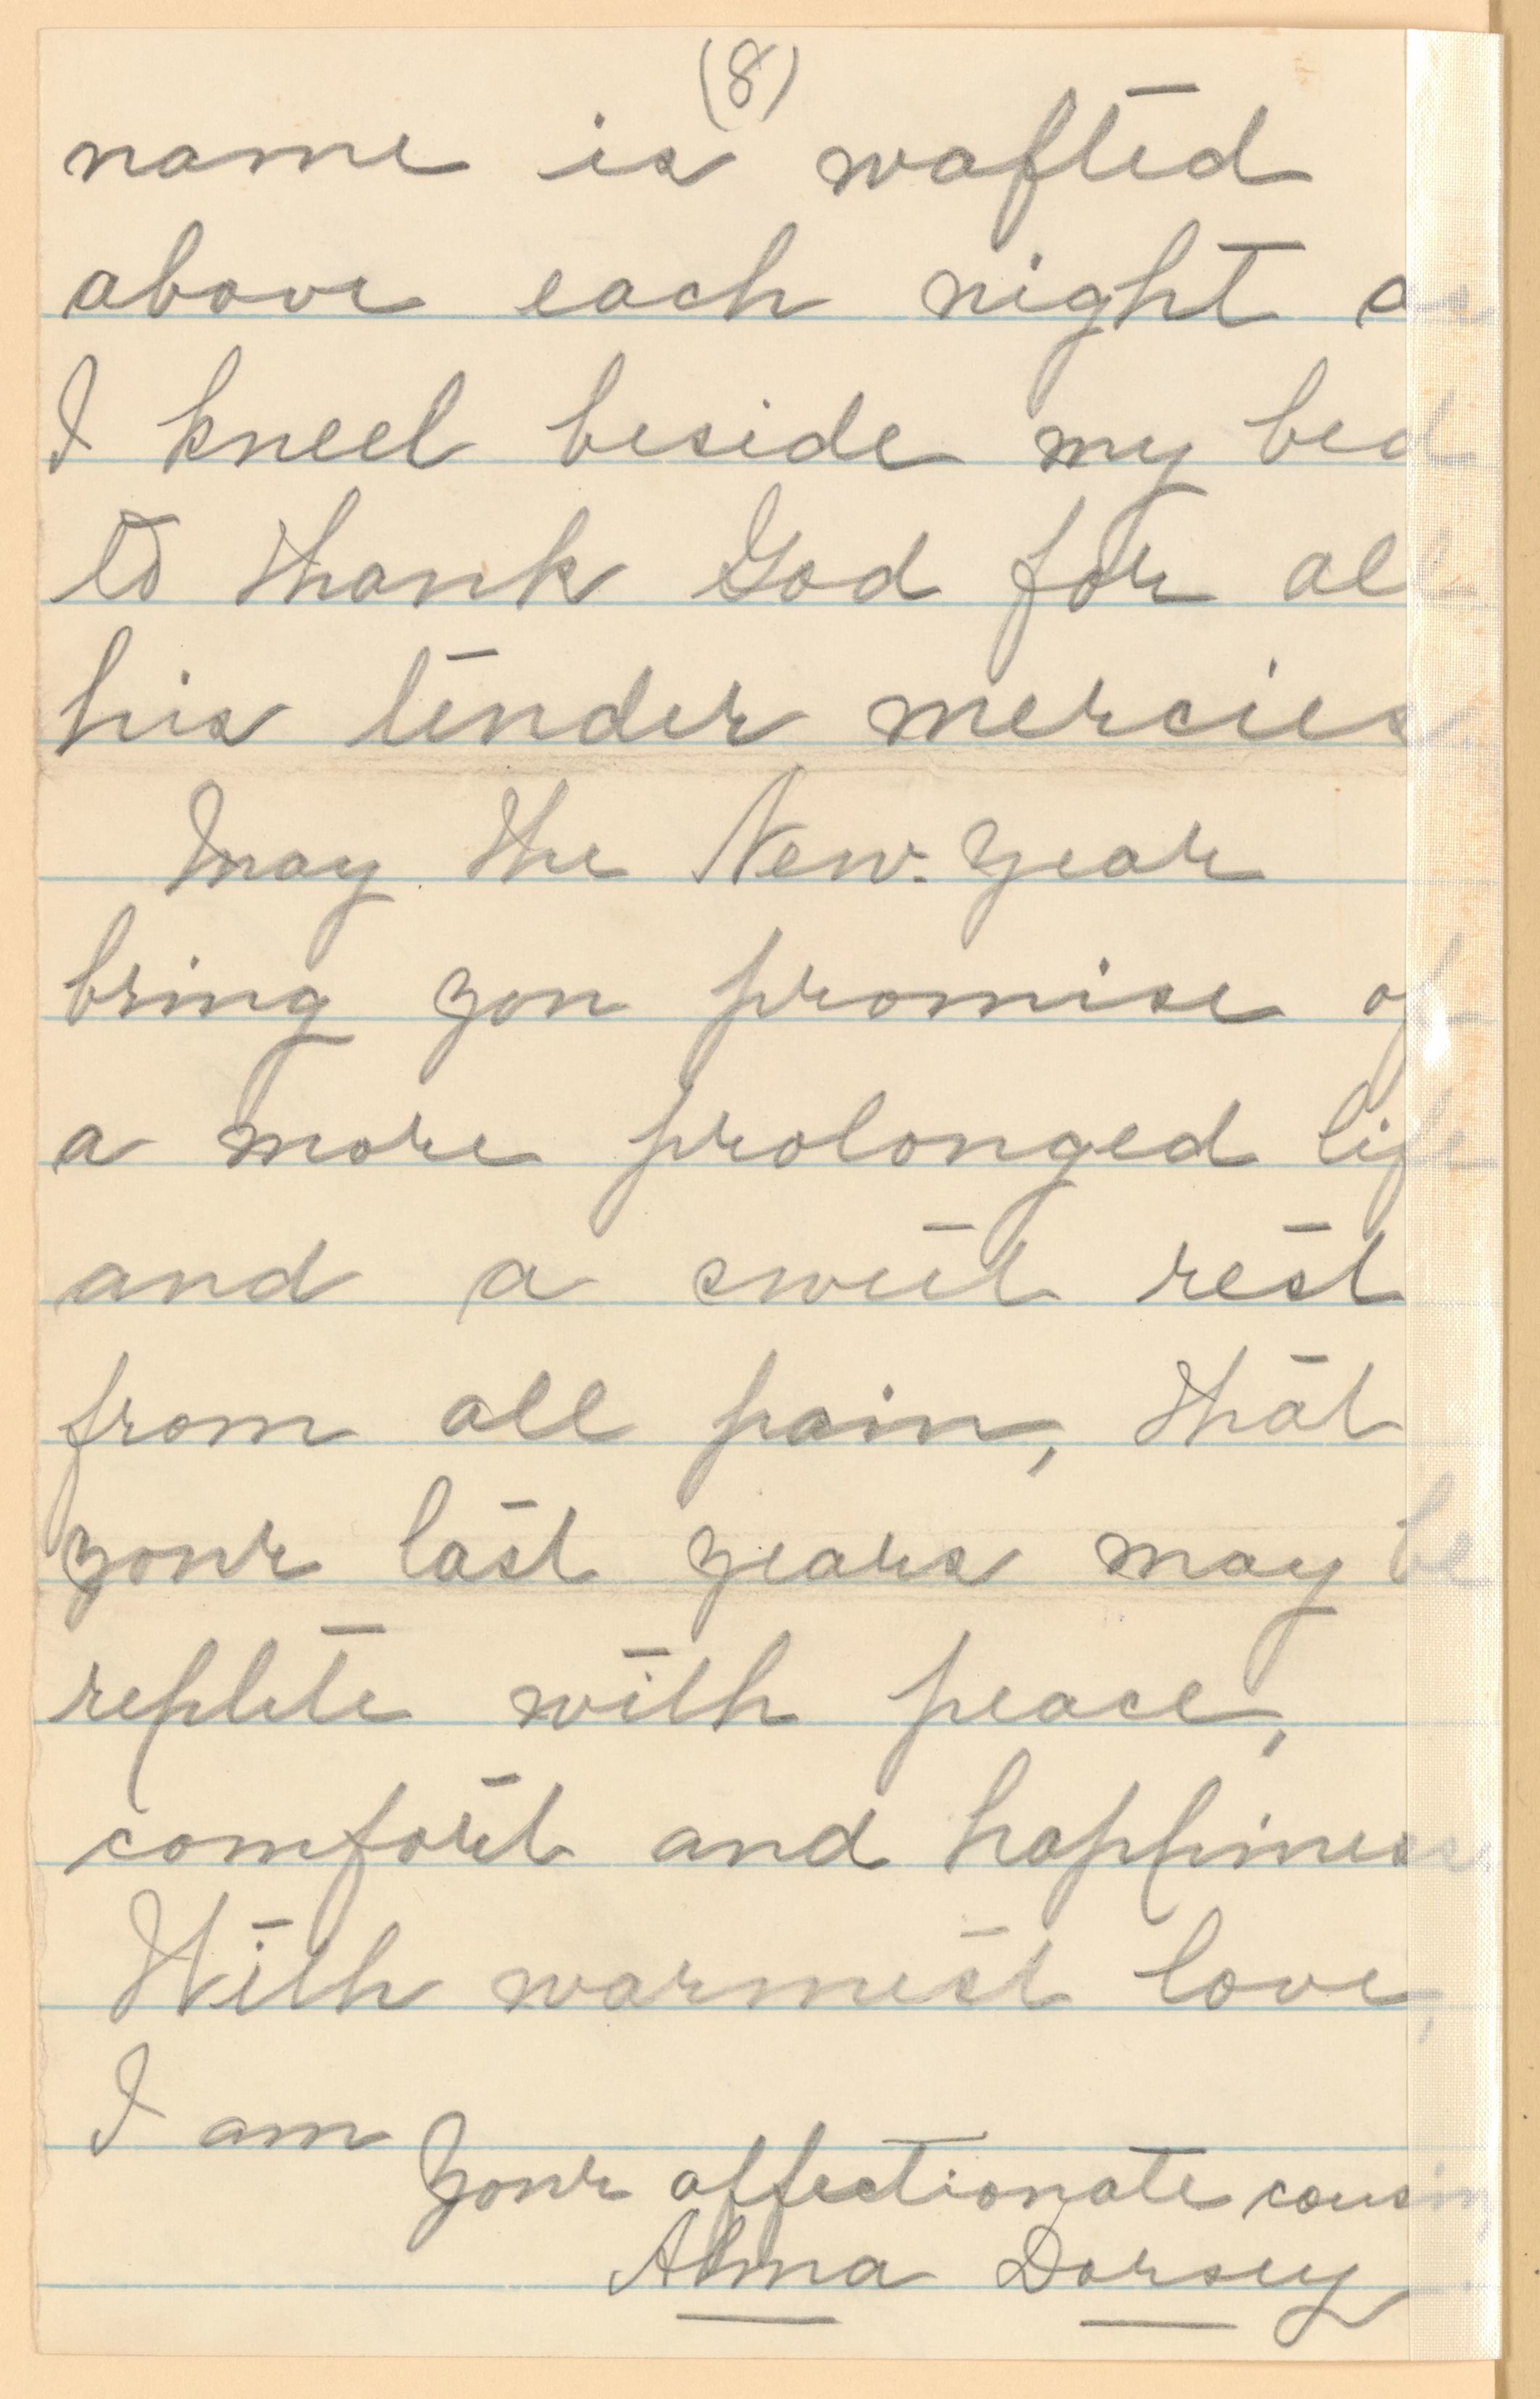 (8)
name is wafted
above each night as
I kneel beside my bed
to thank God for all
his tender mercies.
May the New-Year
bring you promise of
a more prolonged life
and a sweet rest
from all pain, that
your last years may be
replete with peace,
comfort and happiness.
With warmest love,
I am
Your affectionate cousin,
Alma Dorsey